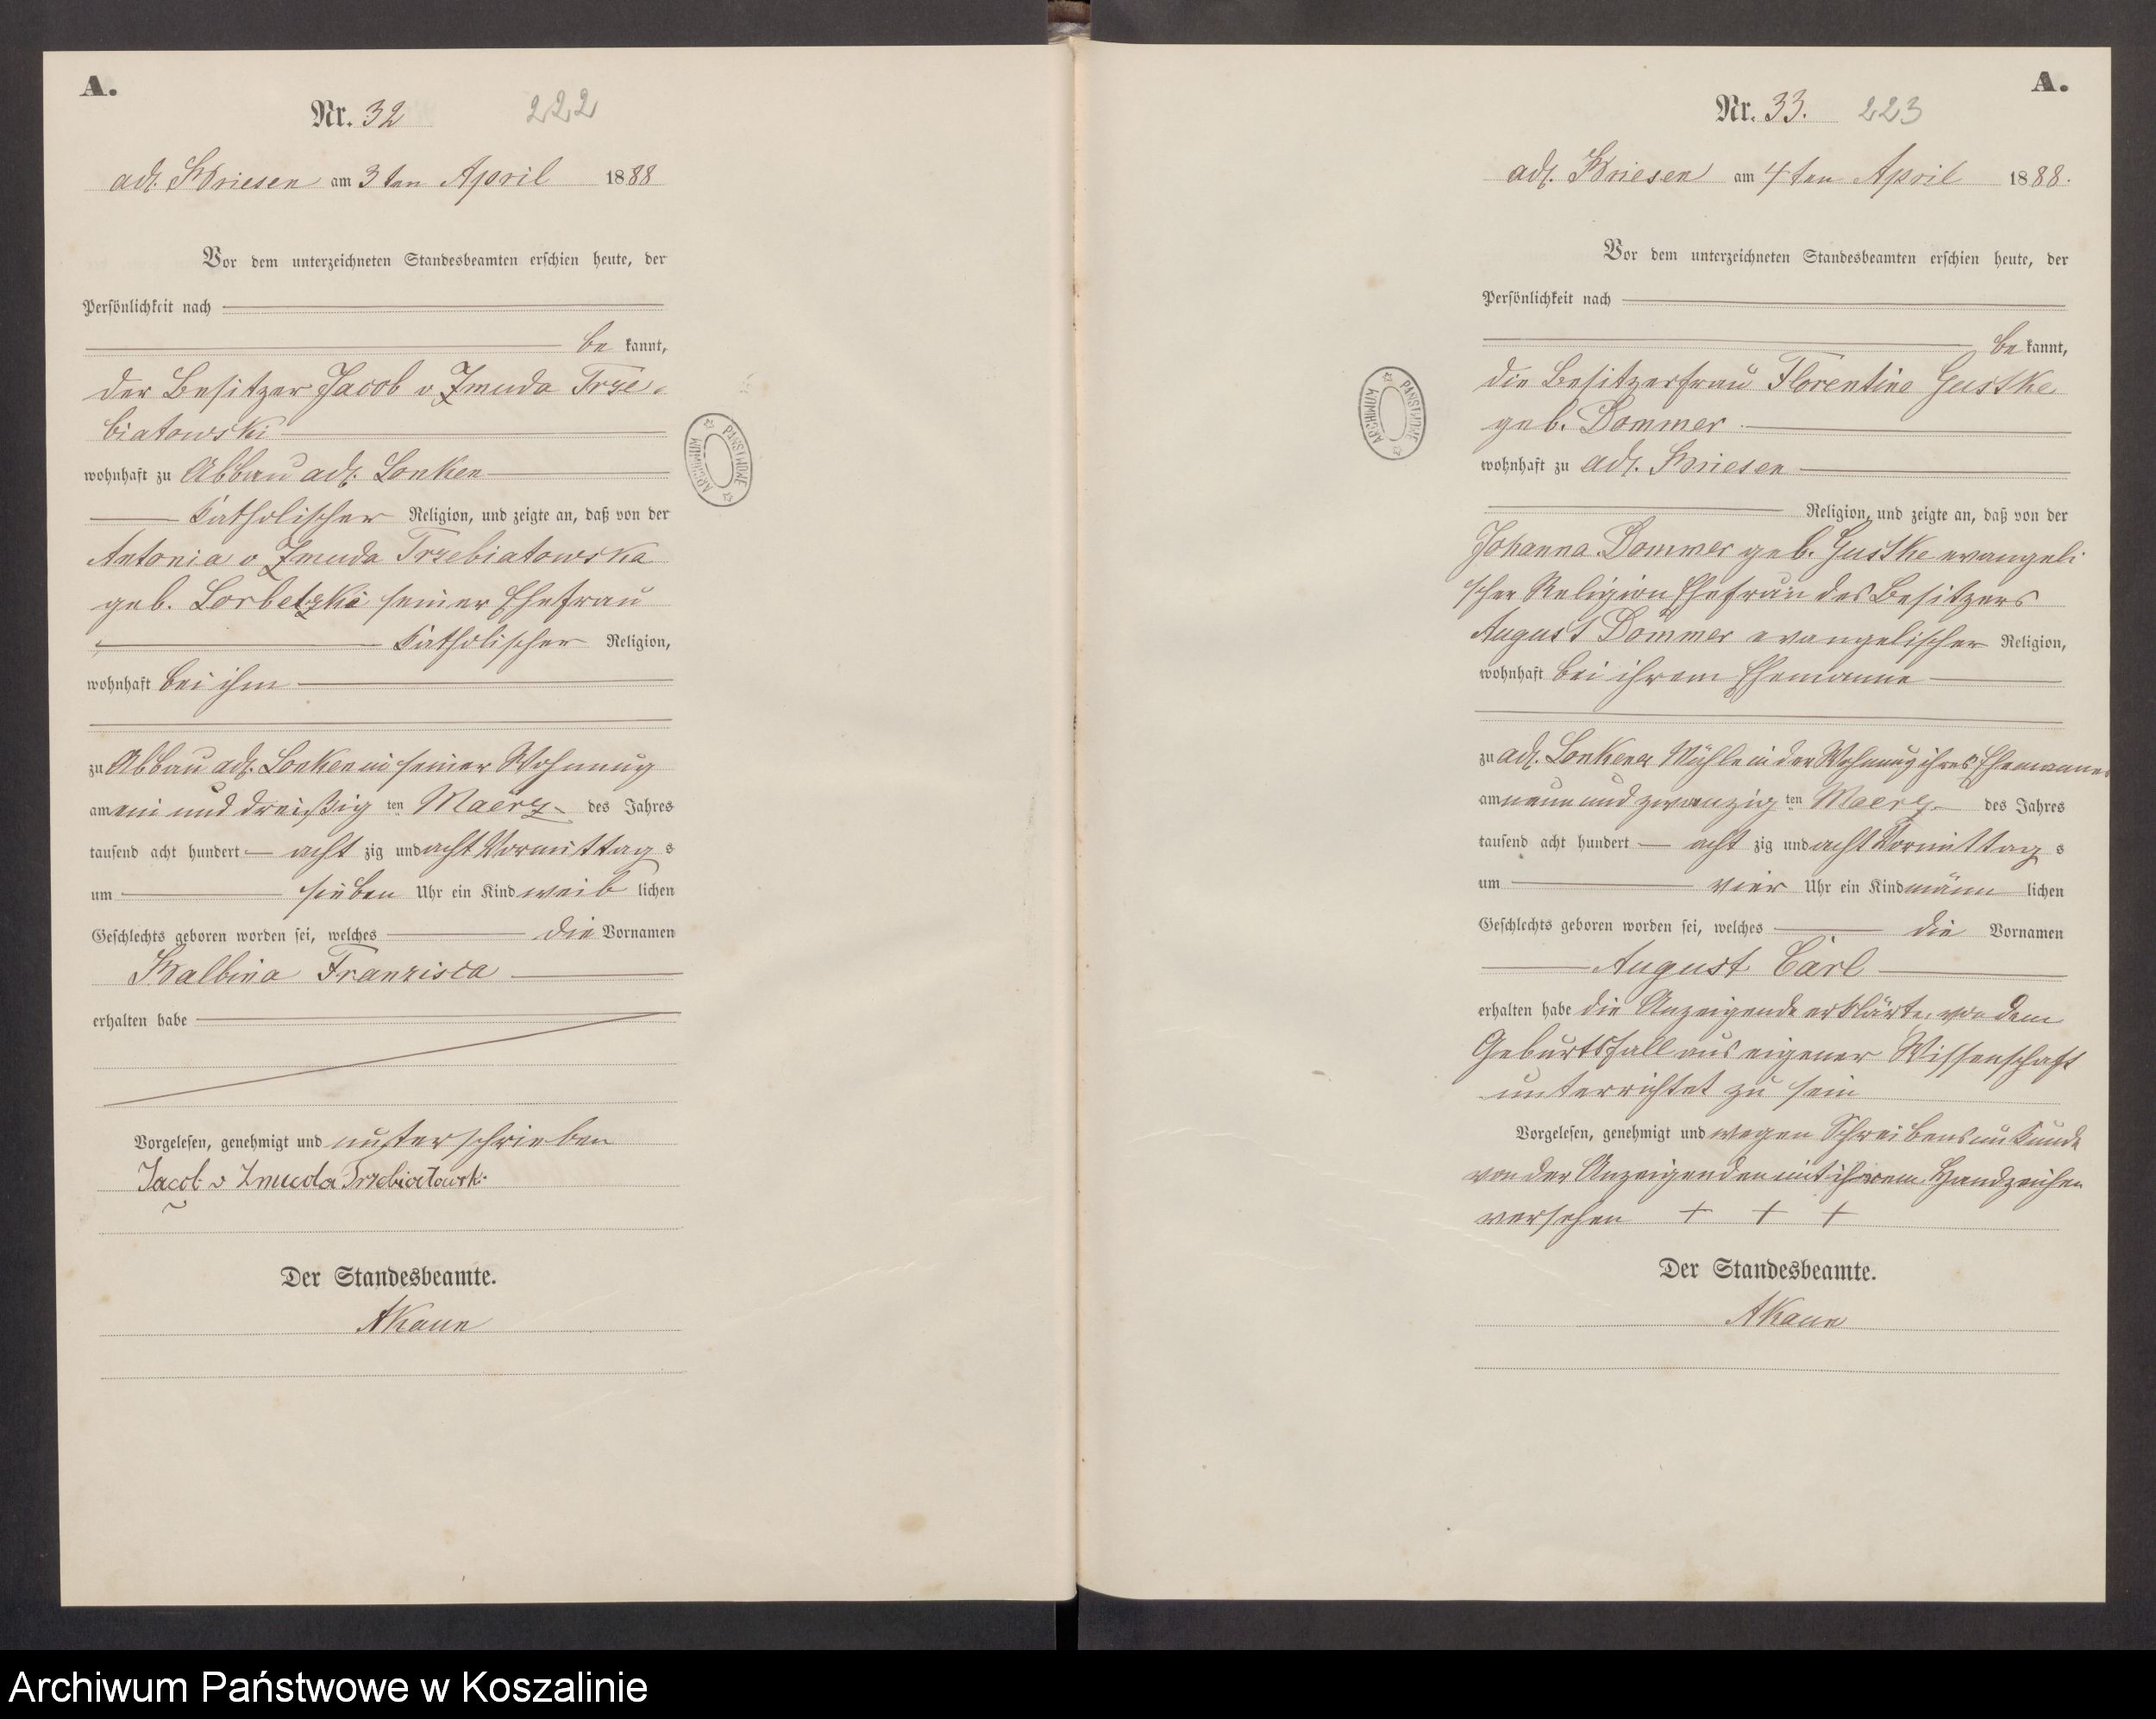 A.
Nr. 32
222
adl. Briesen am 3ten April 1888
Vor dem unterzeichneten Standesbeamten erschien heute, der
Persönlichkeit nach
be kannt,
der Besitzer Jacob v Zmuda Trze-
biatowski
wohnhaft zu Abbau adl. Lonken
katholischer Religion, und zeigte an, daß von der
Antonia v Zmuda Trzebiatowska
geb. seiner Ehefrau
katholischer Religion,
wohnhaft bei ihm
zu Abbau adl. Lonken in seiner Wohnung
am ein und dreißig ten Maerz des Jahres
tausend acht hundert acht zig und acht Vormittag s
um sieben Uhr ein Kind weib lichen
Geschlechts geboren worden sei, welches die Vornamen
Balbina Franzisca
erhalten habe
Vorgelesen, genehmigt und unterschrieben
Jacob v Zmuda Trzebiatowski
Der Standesbeamte.
AKaun
ARCHIWUM PAŃSTWOWE
A.
Nr. 33.
223
adl. Briesen am 4ten April 1888.
Vor dem unterzeichneten Standesbeamten erschien heute, der
Persönlichkeit nach
be kannt,
die Besitzerfrau Florentine Gustke
geb. Dommer
wohnhaft zu adl. Briesen
Religion, und zeigte an, daß von der
Johanna Dommer geb. Gustke evangeli
scher Religion Ehefrau des Besitzers
August Dommer evangelischer Religion,
wohnhaft bei ihrem Ehemanne
zu adl. Lonkener Mühle in der Wohnung ihres Ehemannes
am neun und zwanzig ten Maerz des Jahres
tausend acht hundert acht zig und acht Vormittag s
um vier Uhr ein Kind männ lichen
Geschlechts geboren worden sei, welches die Vornamen
August Carl
erhalten habe die Anzeigende erklärte, von dem
Geburtsfall aus eigener Wissenschaft
unterrichtet zu sein
Vorgelesen, genehmigt und wegen Schreibensunkunde
von der Anzeigenden mit ihrem Handzeichen
versehen + + +
Der Standesbeamte.
AKaun
ARCHIWUM PAŃSTWOWE
Archiwum Państwowe w Koszalinie